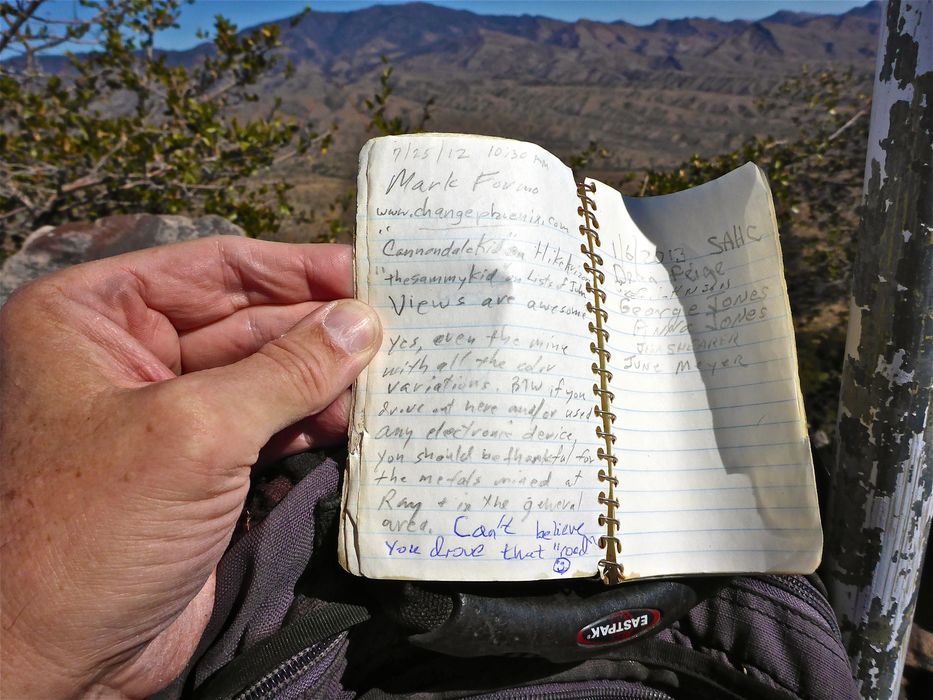 7/25/12 10:30 AM
Mark Formo
www.changephoenix.com
"Cannondalekid" on Hikearizona
"thesammykid on Lists of John
Views are awesome
Yes, even the mine
with all the color
variations. BTW if you
drive out here and/or used
any electronic device,
you should be thankful for
the metals mined at
Ray + in the general
area. Can't believe
you drove that "road"
1/6/2013 SAHC
Paige
George Jones
Jones
Jim Shearer
June Meyer
EASTPAK